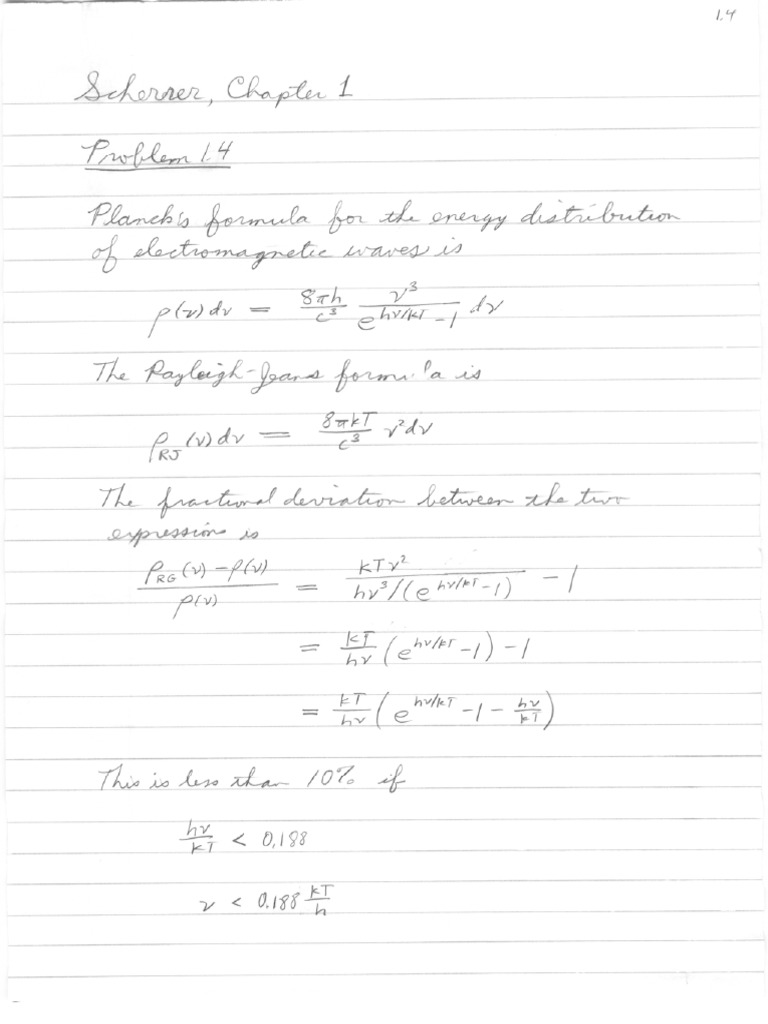 1.4
Scherrer, Chapter 1
Problem 1.4
Planck's formula for the energy distribution
of electromagnetic waves is
ρ(ν)dν = 8πh/c³ ν³/(e^(hν/kT) - 1) dν
The Rayleigh-Jeans formula is
ρ_RJ(ν)dν = 8πkT/c³ ν²dν
The fractional deviation between the two
expression is
(ρ_RG(ν) - ρ(ν))/ρ(ν) = kTν²/(hν³/(e^(hν/kT) - 1)) - 1
= kT/hν (e^(hν/kT) - 1) - 1
= kT/hν (e^(hν/kT) - 1 - hν/kT)
This is less than 10% if
hν/kT < 0.188
ν < 0.188 kT/h